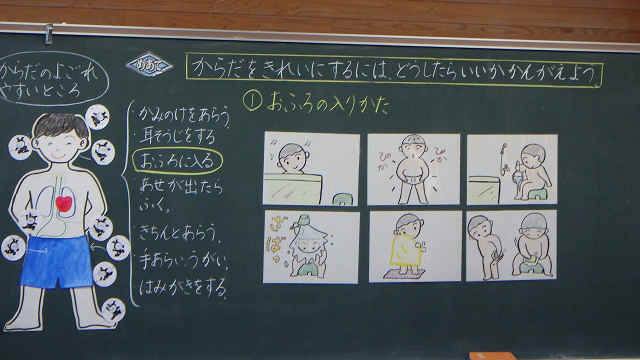 からだのよごれ
やすいところ
めあて
からだをきれいにするには、どうしたらいいかかんがえよう。
①おふろの入りかた
・かみのけをあらう。
・耳そうじをする
・おふろに入る
・あせが出たら
ふく。
・きちんとあらう。
・手あらい、うがい。
・はみがきをする。
ぴか
ぴか
ざ
ばっ